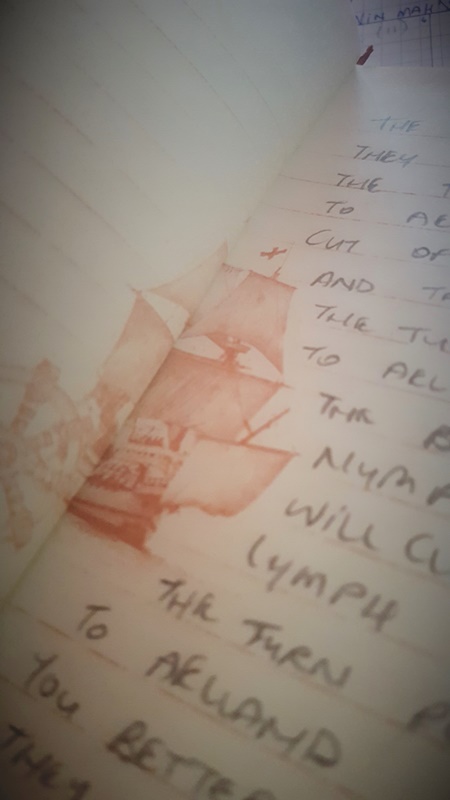 VIN MAH
THE
THEY
THE T
TO AE
CUT OF
AND TA
THE TU
TO AEL
THE B
NYMP
WILL CU
LYMPH
THE TURN
TO AELLAND
YOU BETTE
THEY